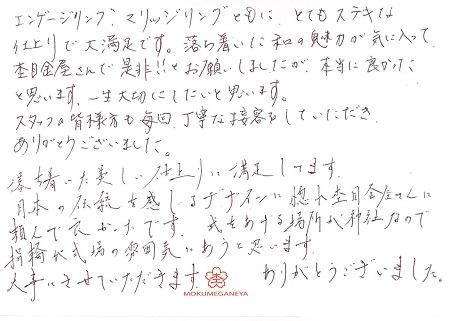 エンゲージリング、マリッジリングともに、とてもステキな
仕上りで大満足です。落ち着いた和の魅力が気に入って
杢目金屋さんで是非!!とお願いしましたが、本当に良かった
と思います。一生大切にしたいと思います。
スタッフの皆様方も毎回、丁寧な接客をしていただき
ありがとうございました。
落ち着いた美しい仕上りに満足してます。
日本の伝統を感じるデザインに惚れ杢目金屋さんに
頼んで良かったです。式をあげる場所が神社なので
指輪が式場の雰囲気にあうと思います。
大事にさせていただきます。 ありがとうございました。
MOKUMEGANEYA